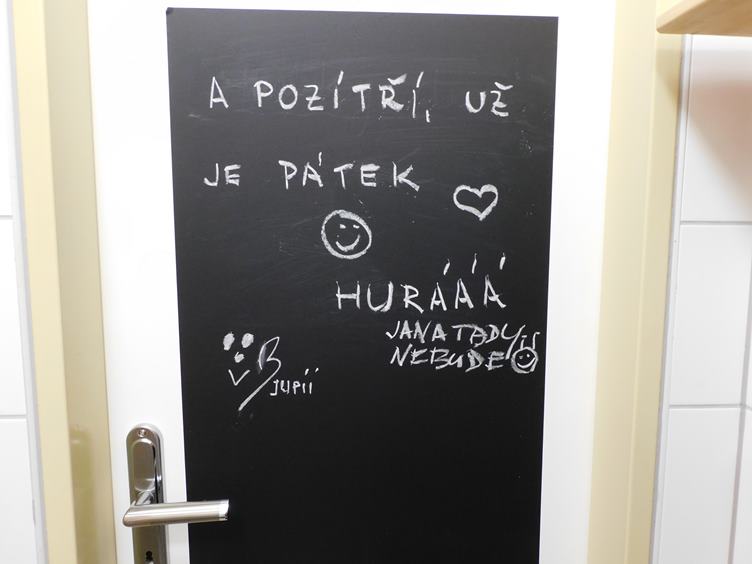 A POZÍTŘÍ, UŽ
JE PÁTEK
HURÁÁÁ
JANA TADY
NEBUDE
JUPÍÍ